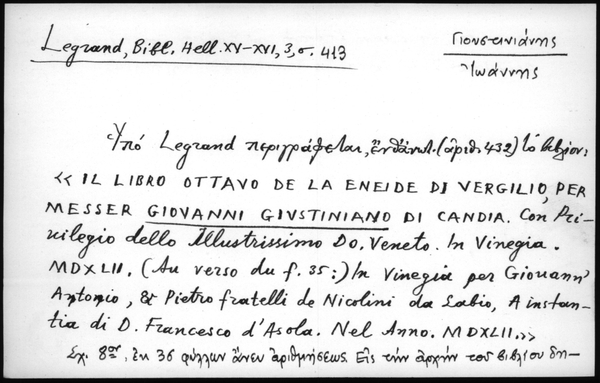 Legrand, Bibl. Hell. XV-XVI, 3, σ. 413
Γιουστινιάνης
Ἰωάννης
Ὑπό Legrand περιγράφεται, ἔνθ' ἀνωτ. (ἀριθ. 432) τό ἑξῆς βιβλίον:
« IL LIBRO OTTAVO DE LA ENEIDE DI VERGILIO, PER
MESSER GIOVANNI GIVSTINIANO DI CANDIA. Con Pri-
uilegio dello Illustrissimo Do. Veneto. In Vinegia.
MDXLII. (Au verso du f. 35:) In Vinegia per Giouann'
Antonio, & Pietro fratelli de Nicolini da Sabio, A instan-
tia di D. Francesco d'Asola. Nel Anno. MDXLII.»
Σχ. 8ον, ἐκ 36 φύλλων ἄνευ ἀριθμήσεως. Εἰς τήν ἀρχήν τοῦ βιβλίου δη-